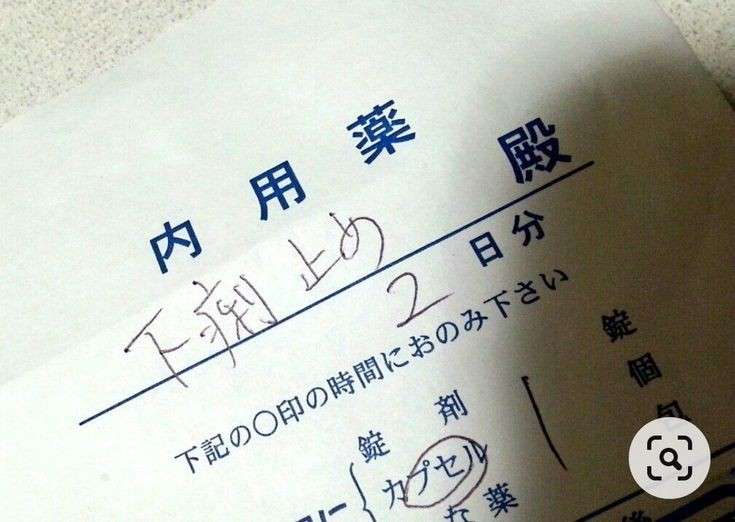 内用薬
下痢止め 殿
2日分
下記の〇印の時間におのみ下さい
錠剤 錠
カプセル 個
包